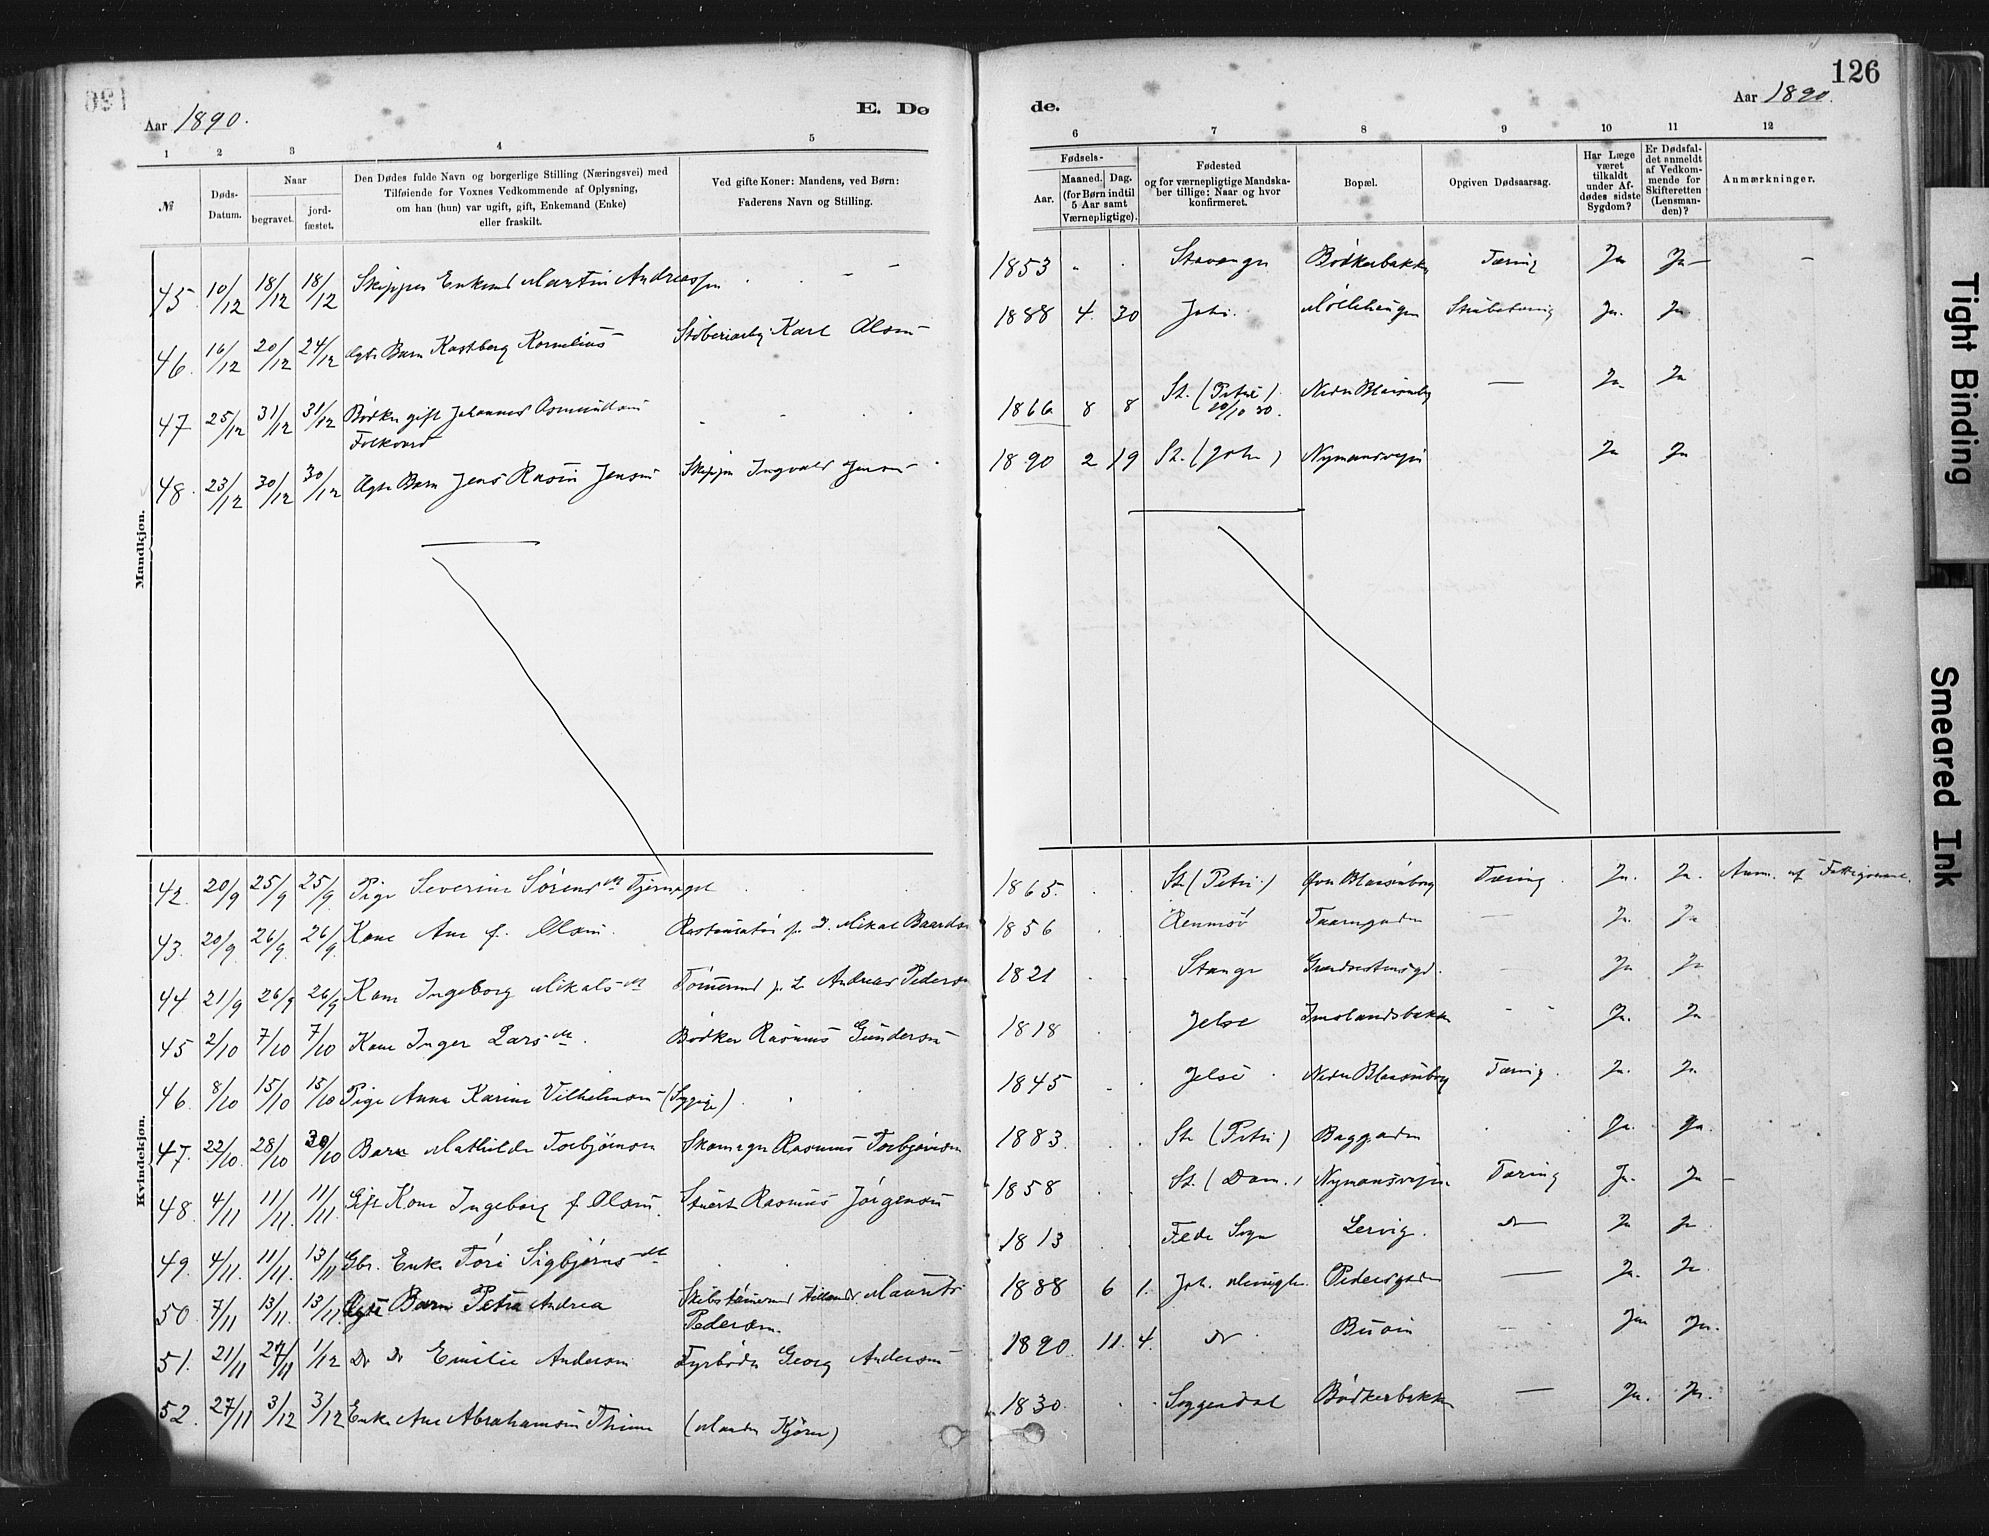 126
Aar 1890.
E. Dø
de.
Aar 1890.
1 2 3 4 5
6 7 8 9 10 11 12
№
Døds-Datum.
Naar
begravet.
jord-fæstet.
Den Dødes fulde Navn og borgerlige Stilling (Næringsvei) med
Tilføiende for Voxnes Vedkommende af Oplysning,
om han (hun) var ugift, gift, Enkemand (Enke)
eller fraskilt.
Ved gifte Koner: Mandens, ved Børn:
Faderens Navn og Stilling.
Fødsels-
Aar.
Maaned. Dag.
(for Børn indtil
5 Aar samt
Værnepligtige).
Fødested
og for værnepligtige Mandska-
ber tillige: Naar og hvor
konfirmeret.
Bopæl.
Opgiven Dødsaarsag.
Har Læge
været
tilkaldt
under Af-
dødes sidste
Sygdom?
Er Dødsfal-
det anmeldt
af Vedkom-
mende for
Skifteretten
(Lensman-
den)?
Anmærkninger.
Mandkjøn.
45. 10/12 18/12 18/12 Skipper Enkemd Martin Andreassen 1853 Stavanger Bødkerbakken Tæring Ja Ja —
46. 16/12 20/12 24/12 Ægte Barn Kastberg Kornelius Støberiarb. Karl Olsen 1888 4. 30 Joh. Møllehaugen Strubetæring Ja. Ja
47 25/12 31/12 31/12 Bødker gift Johannes Asmundsen 1866 8 8 St. (Petri) Nedre Blaasenborg — Ja Ja
Folkvord 20/10 80.
48. 23/12 30/12 30/12 Ægte Barn Jens Rasin Jensen Skipper Ingvald Jensen 1890 2 19 St. (Joh.) Nymansveien Ja Ja
Kvindekjøn.
42. 20/9 25/9 25/9 Pige Severine Sørensdt Tjernagel 1865. St. (Petri) Øvre Blaasenborg Tæring. Ja. Ja. Anm. af
43. 20/9 26/9. 26/9. Kone Ane f. Olsen. Mikal Baardsen 1856 Rennesø — Ja. Ja
44. 21/9 26/9 26/9 Kone Ingeborg Mikalsdt Tømmermd Andreas Pedersen 1821 — Ja Ja
45 2/10 7/10 7/10 Kone Inger Larsdt. Bødker Rasmus Gundersen 1818 Jelse Imslandsbakken Ja. Ja
46. 8/10 15/10 15/10 Pige Anna Karine Vilhelmsen 1845 Jelse Nedre Blaasenborg Tæring. Ja. Ja
47. 22/10. 28/10 30/10 Barn Mathilde Torbjørnsen Skomager Rasmus Torbjørnsen 1883. St. (Petri) Baggaden Ja. Ja.
48. 4/11 11/11. 11/11. Gift Kone Ingeborg f. Olsen. Stuert Rasmus Jørgensen 1858 St. (Dom.) Nymansveien. Tæring Ja. Ja —
49. 4/11. 11/11. 13/11 Gbr. Enke Tori Sigbjørnsdt 1813 Lervig. Do Ja Ja.
50. 7/11 13/11 13/11. Ægte Barn Petra Andrea Skibstømmermd Maurits 1888 6 1. Joh. menigh. Pedersgaden — Ja. Ja.
Pedersen.
51. 21/11 27/11 1/12 Do Do Emilie Andersen Fyrbøder Georg Andersen 1890 11. 4. Do Buøen — Ja Ja.
52. 27/11 3/12 3/12 Enke Ane Abrahamsen Thime 1830. Soggendal Bødkerbakken — Ja. Ja.
Tight Binding
Smeared Ink